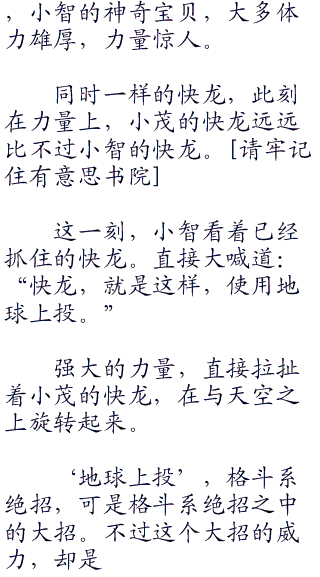 ，小智的神奇宝贝，大多体
力雄厚，力量惊人。
同时一样的快龙，此刻
在力量上，小茂的快龙远远
比不过小智的快龙。[请牢记
住有意思书院]
这一刻，小智看着已经
抓住的快龙。直接大喊道：
“快龙，就是这样，使用地
球上投。”
强大的力量，直接拉扯
着小茂的快龙，在与天空之
上旋转起来。
‘地球上投’，格斗系
绝招，可是格斗系绝招之中
的大招。不过这个大招的威
力，却是